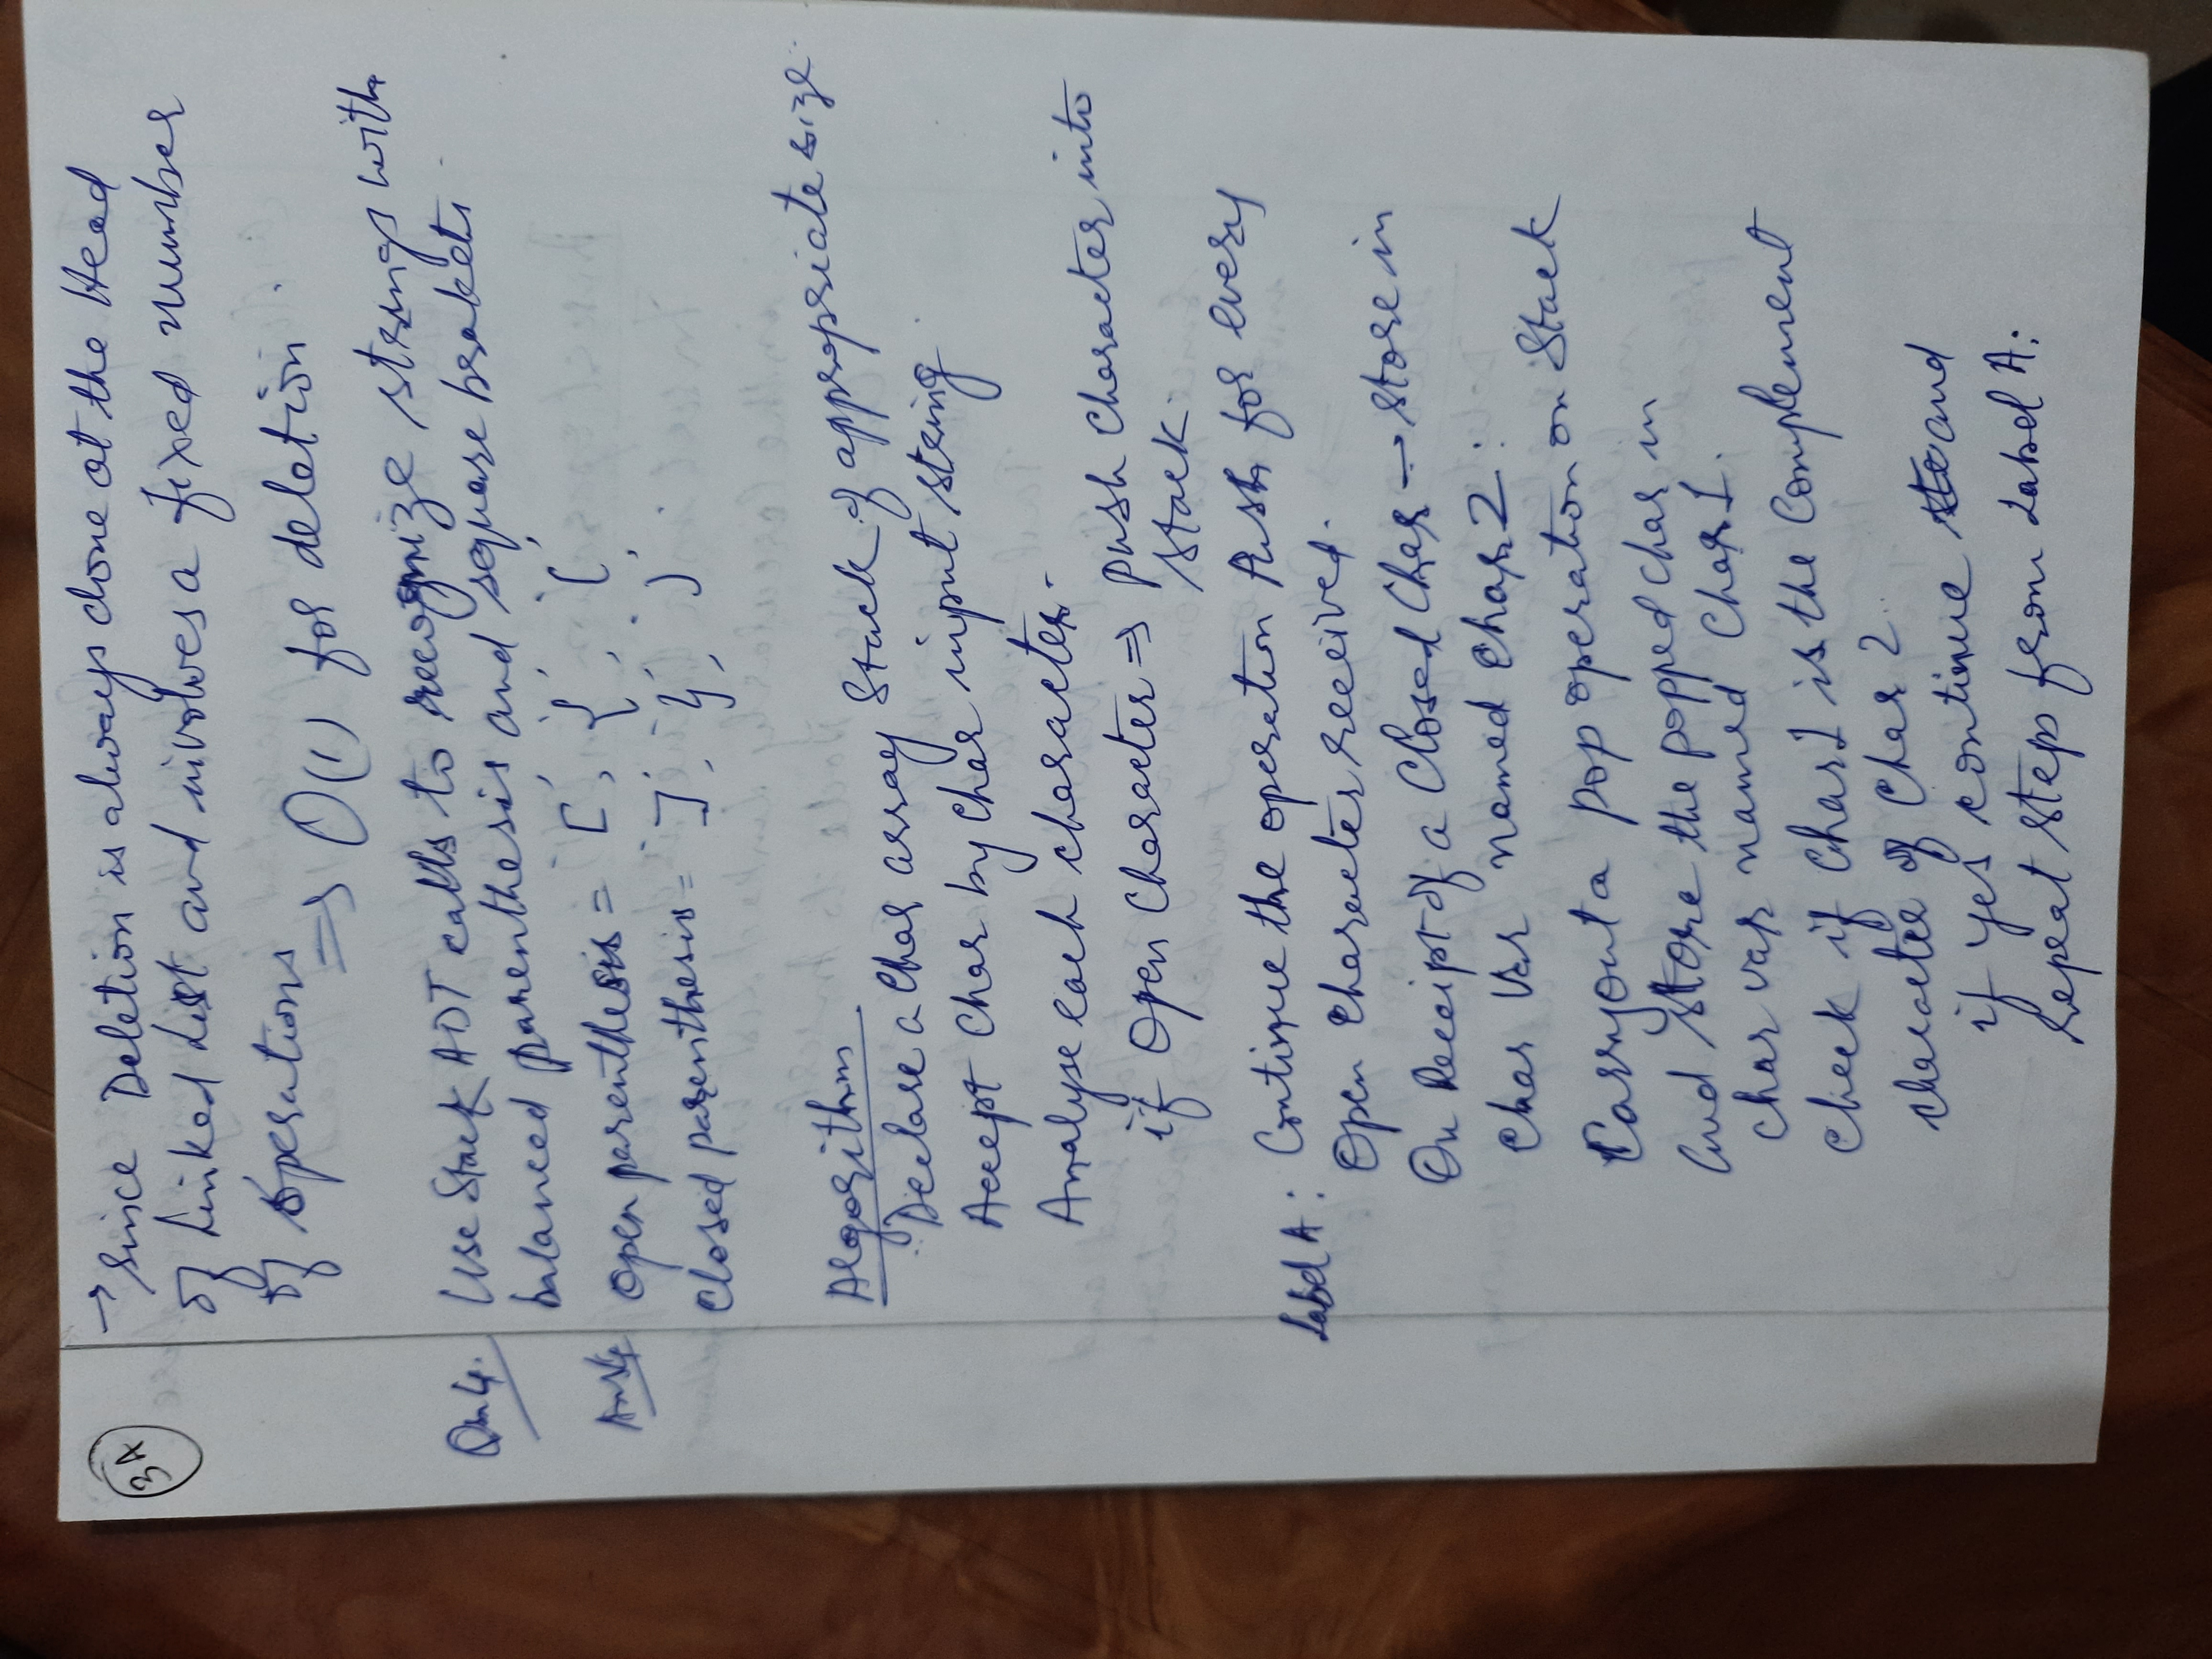 3A
→ Since Deletion is always done at the Head
of Linked List and involves a fixed number
of operations
⇒ O(1) for deletion.
Qn 4. Use Stack ADT calls to recognize strings with
balanced parenthesis and square brakets
Ans 4 Open parenthesis = '[', '{', '('
Closed parenthesis = ']', '}', ')'
Algorithm
Declare a Char array Stack of appropriate size.
Accept Char by Char input string
Analyse each character.
if Open Character ⇒ push Character into
Stack.
Label A: Continue the operation Push for every
Open Character received.
On Receipt of a Closed Char → store in
Char Var named Char 2:
Carryout a pop operation on Stack
and store the popped char in
char var named Char 1.
Check if Char 1 is the Complement
character of Char 2.
if yes continue and
repeat steps from Label A: